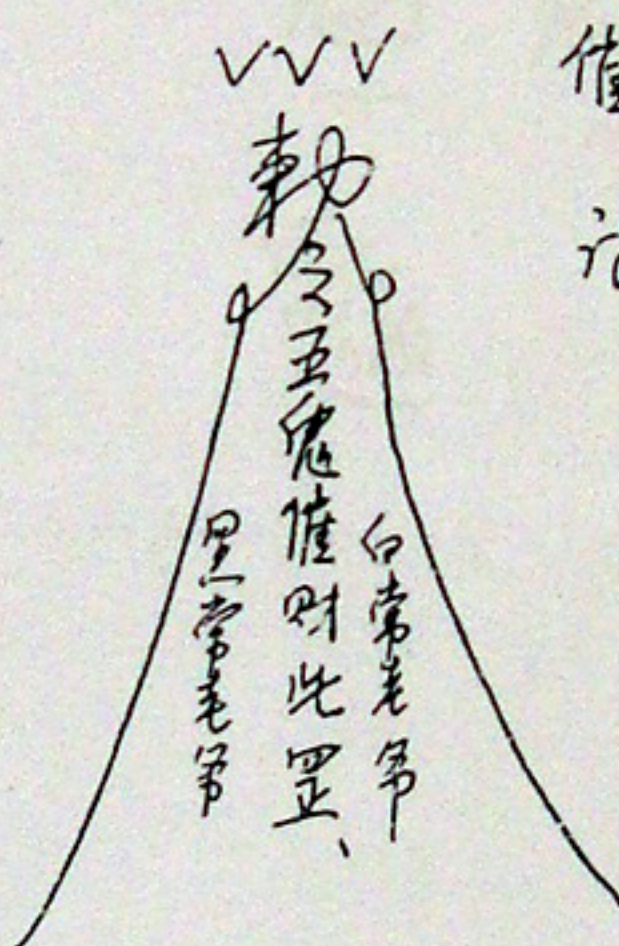 催
VVV
勅令五鬼催财此罡、
白常老爷
黑常老爷